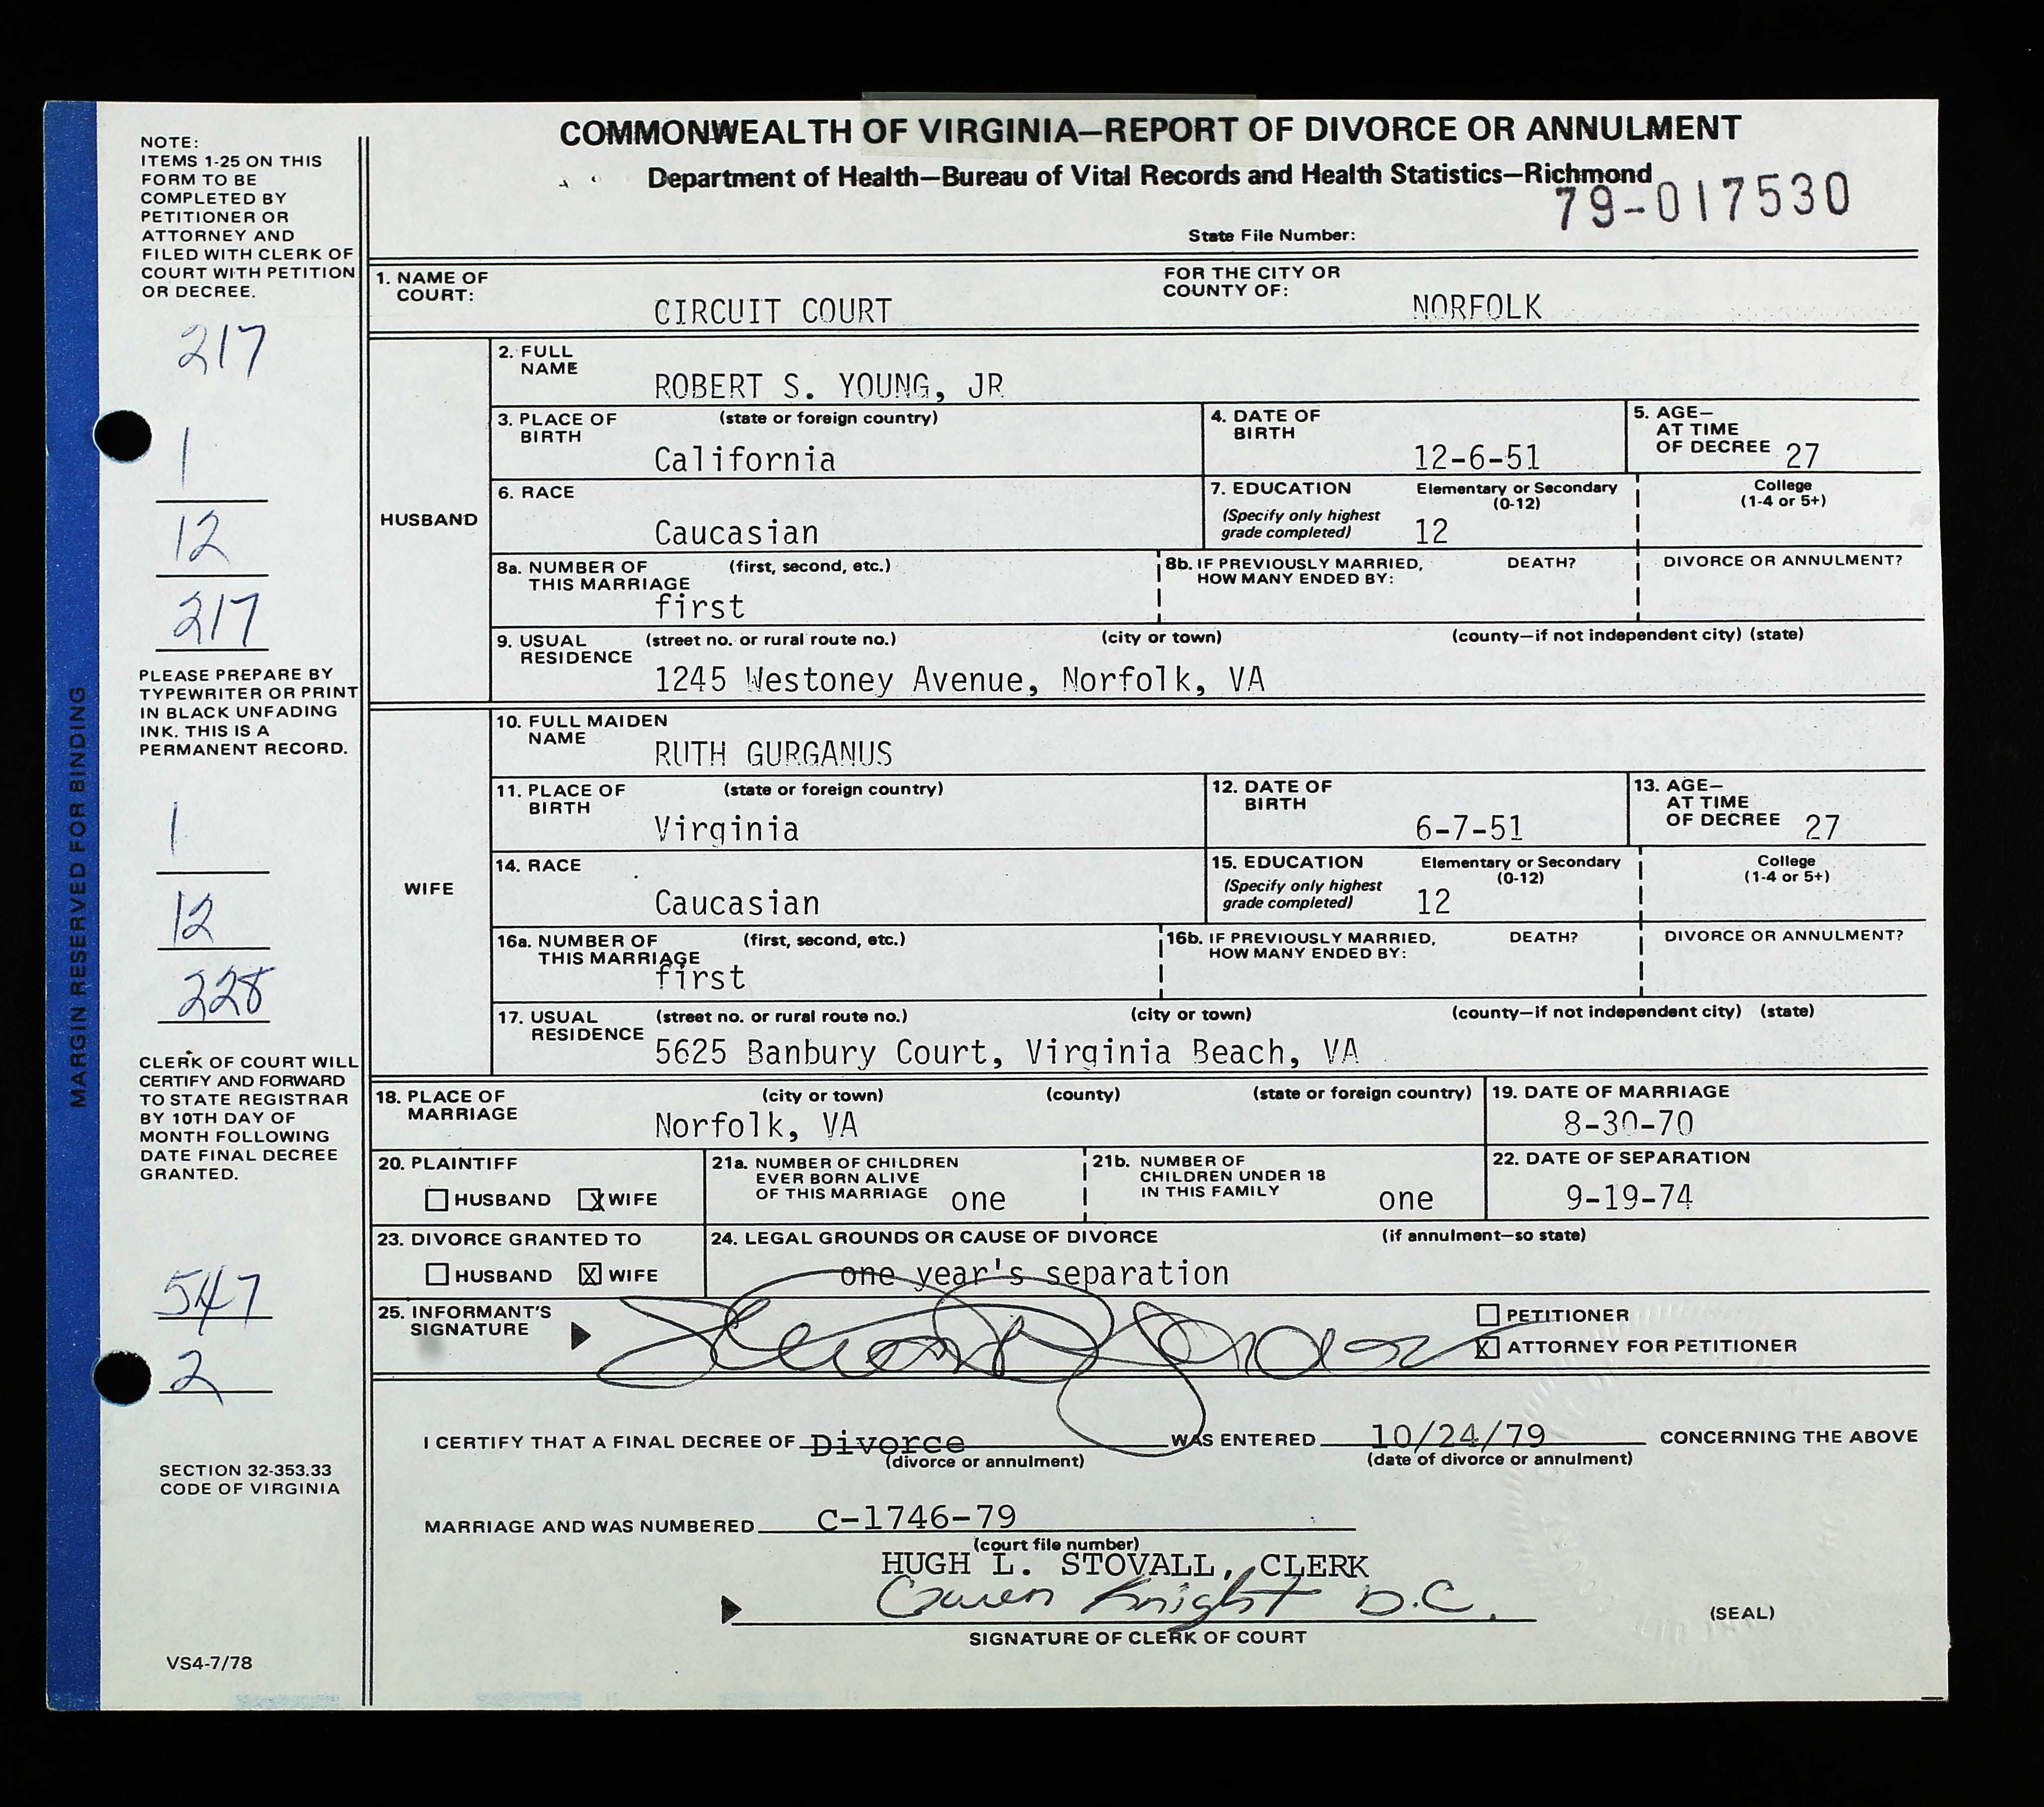 COMMONWEALTH OF VIRGINIA—REPORT OF DIVORCE OR ANNULMENT
Department of Health—Bureau of Vital Records and Health Statistics—Richmond
79-017530
State File Number:
NOTE:
ITEMS 1-25 ON THIS
FORM TO BE
COMPLETED BY
PETITIONER OR
ATTORNEY AND
FILED WITH CLERK OF
COURT WITH PETITION
OR DECREE.
217
1
12
217
PLEASE PREPARE BY
TYPEWRITER OR PRINT
IN BLACK UNFADING
INK. THIS IS A
PERMANENT RECORD.
1
12
228
CLERK OF COURT WILL
CERTIFY AND FORWARD
TO STATE REGISTRAR
BY 10TH DAY OF
MONTH FOLLOWING
DATE FINAL DECREE
GRANTED.
547
2
SECTION 32-353.33
CODE OF VIRGINIA
VS4-7/78
MARGIN RESERVED FOR BINDING
1. NAME OF COURT: CIRCUIT COURT FOR THE CITY OR COUNTY OF: NORFOLK
HUSBAND
2. FULL NAME ROBERT S. YOUNG, JR
3. PLACE OF BIRTH (state or foreign country) California 4. DATE OF BIRTH 12-6-51 5. AGE— AT TIME OF DECREE 27
6. RACE Caucasian 7. EDUCATION (Specify only highest grade completed) Elementary or Secondary (0-12) 12 College (1-4 or 5+)
8a. NUMBER OF THIS MARRIAGE (first, second, etc.) first 8b. IF PREVIOUSLY MARRIED, HOW MANY ENDED BY: DEATH? DIVORCE OR ANNULMENT?
9. USUAL RESIDENCE (street no. or rural route no.) (city or town) (county—if not independent city) (state)
1245 Westoney Avenue, Norfolk, VA
WIFE
10. FULL MAIDEN NAME RUTH GURGANUS
11. PLACE OF BIRTH (state or foreign country) Virginia 12. DATE OF BIRTH 6-7-51 13. AGE— AT TIME OF DECREE 27
14. RACE Caucasian 15. EDUCATION (Specify only highest grade completed) Elementary or Secondary (0-12) 12 College (1-4 or 5+)
16a. NUMBER OF THIS MARRIAGE (first, second, etc.) first 16b. IF PREVIOUSLY MARRIED, HOW MANY ENDED BY: DEATH? DIVORCE OR ANNULMENT?
17. USUAL RESIDENCE (street no. or rural route no.) (city or town) (county—if not independent city) (state)
5625 Banbury Court, Virginia Beach, VA
18. PLACE OF MARRIAGE (city or town) (county) (state or foreign country) Norfolk, VA 19. DATE OF MARRIAGE 8-30-70
20. PLAINTIFF HUSBAND X WIFE 21a. NUMBER OF CHILDREN EVER BORN ALIVE OF THIS MARRIAGE one 21b. NUMBER OF CHILDREN UNDER 18 IN THIS FAMILY one 22. DATE OF SEPARATION 9-19-74
23. DIVORCE GRANTED TO HUSBAND X WIFE 24. LEGAL GROUNDS OR CAUSE OF DIVORCE (if annulment—so state) one year's separation
25. INFORMANT'S SIGNATURE PETITIONER
X ATTORNEY FOR PETITIONER
I CERTIFY THAT A FINAL DECREE OF Divorce WAS ENTERED 10/24/79 CONCERNING THE ABOVE
(divorce or annulment) (date of divorce or annulment)
MARRIAGE AND WAS NUMBERED C-1746-79
(court file number)
HUGH L. STOVALL, CLERK
Gwen Knight D.C.
SIGNATURE OF CLERK OF COURT
(SEAL)